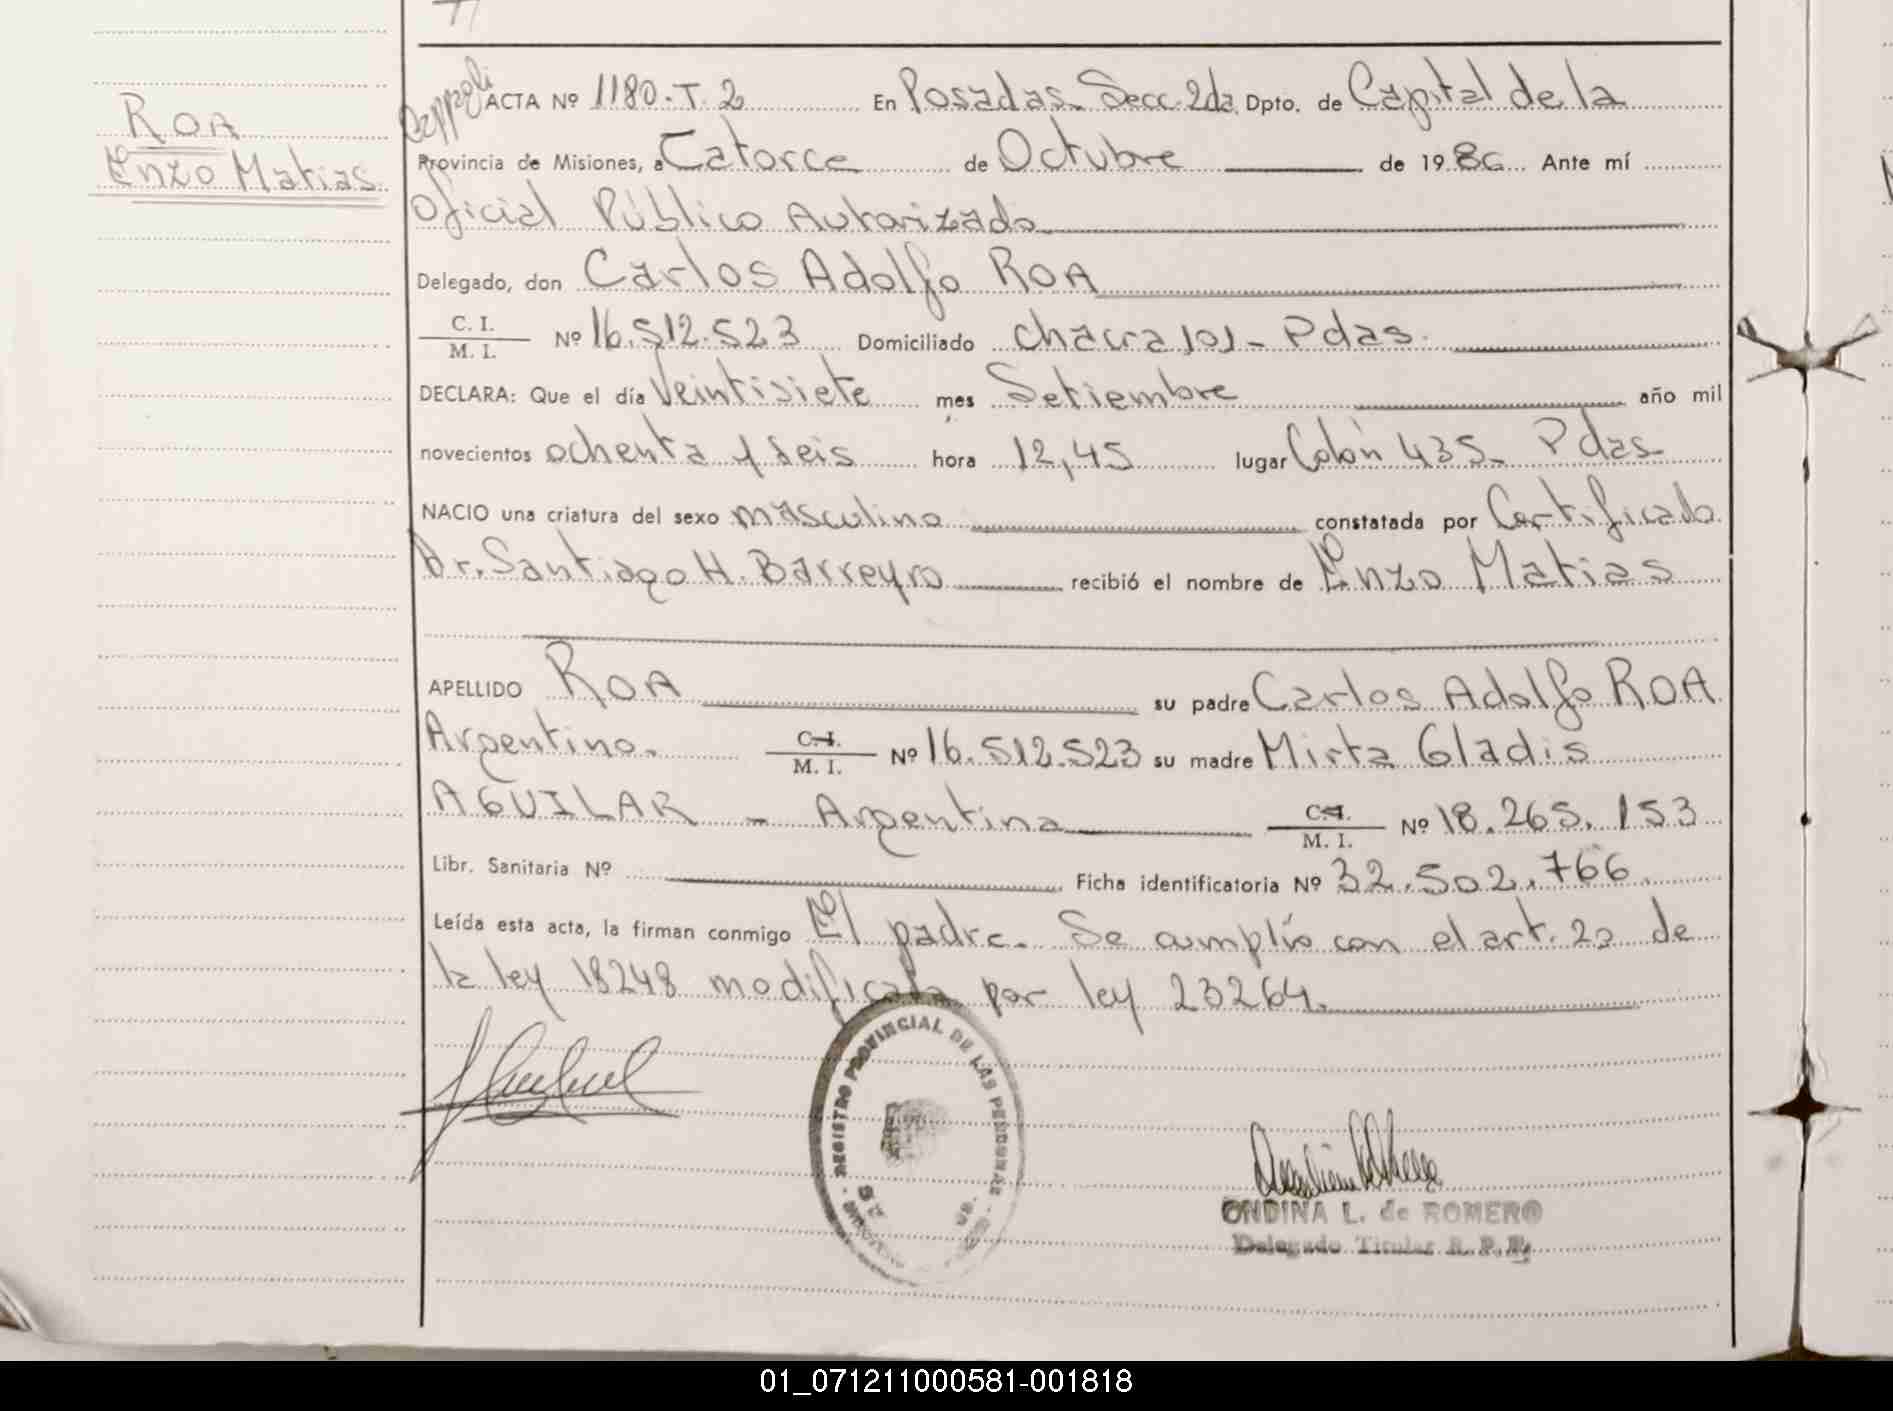 ROA
Enzo Matias
ACTA Nº 1180. T. 2 En Posadas Secc. 2da. Dpto. de Capital de la
Provincia de Misiones, a Catorce de Octubre de 1986 Ante mí
Oficial Público Autorizado
Delegado, don Carlos Adolfo ROA
C. I.
M. I. Nº 16.512.523 Domiciliado Chacra 101 - Pdas.
DECLARA: Que el día Veintisiete mes Setiembre año mil
novecientos ochenta y seis hora 12,45 lugar Colón 435 - Pdas
NACIO una criatura del sexo masculino constatada por Certificado
Dr. Santiago H. Barreyro recibió el nombre de Enzo Matias
APELLIDO ROA su padre Carlos Adolfo ROA
Argentino. C. I.
M. I. Nº 16.512.523 su madre Mirta Gladis
AGUILAR - Argentina C. I.
M. I. Nº 18.265.153
Libr. Sanitaria Nº Ficha identificatoria Nº 32.502.766
Leída esta acta, la firman conmigo El padre. Se cumplió con el art. 2º de
la ley 18248 modificada por ley 23264.
REGISTRO PROVINCIAL DE LAS PERSONAS
ONDINA L. de ROMERO
Delegado Titular R. P. P.
01_071211000581-001818